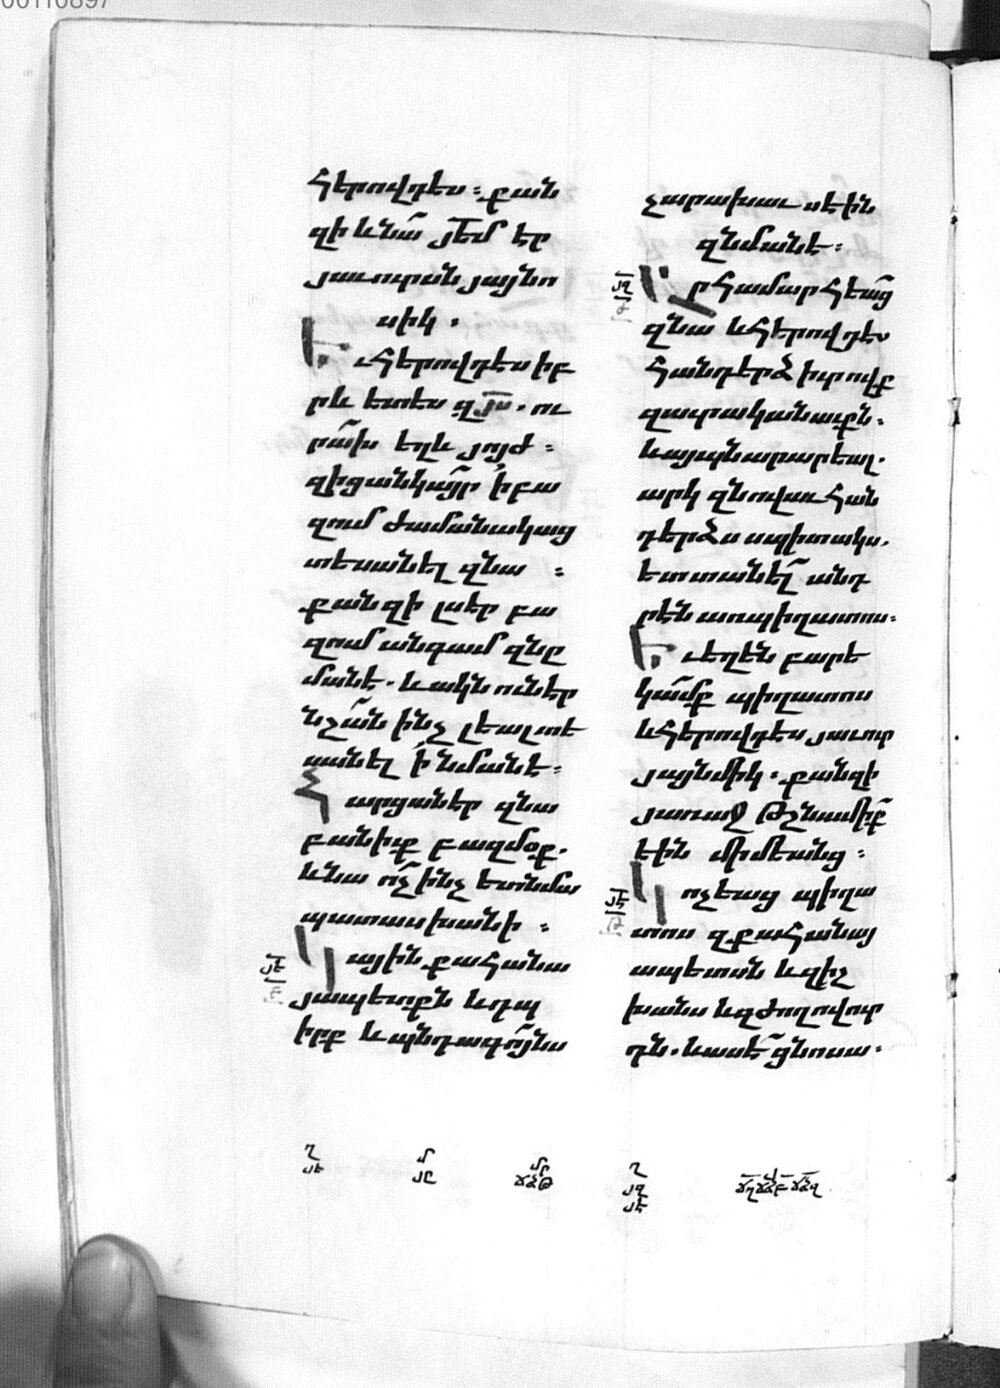 00110897
հերովդես։ քան
զի և նա՛ յե՟մ էր
յաւուրսն յայնո
սիկ.
Եւ հերովդես իբ
րև ետես զյ՟ս. ու
րա՛խ եղև յոյժ։
զի ցանկայր ի բա
զում ժամանակաց
տեսանել զնա։
քանզի լսէր բա
զում անգամ զնը
մանէ. և ակն ունէր
նշա՛ն ինչ լեալ տե
սանել ի նմանէ։
Հարցանէր զնա
բանիւք բազմօք.
և նա ո՛չ ինչ ետ նմա
պատասխանի։
Կային քահանա
յապետքն և դպ
իրք և պնդագոյնս
չարախաւսէին
զնմանէ։
Արհամարհեա՛ց
զնա և հերովդես
հանդերձ իւրովք
զաւրականաւքն.
և այպն արարեալ.
արկ զնովաւ հան
դերձս սպիտակս.
ետ տանե՛լ անդ
րէն առ պիղատոս։
Եւ եղեն բարե
կա՛մք պիղատոս
և հերովդես յաւուր
յայնմիկ. քանզի
յառաջ թշնամի՛ք
էին միմեանց։
Կոչեաց պիղա
տոս զքահանայ
ապետսն և զիշ
խանս և զժողովուր
դն. և ասէ ցնոսա.